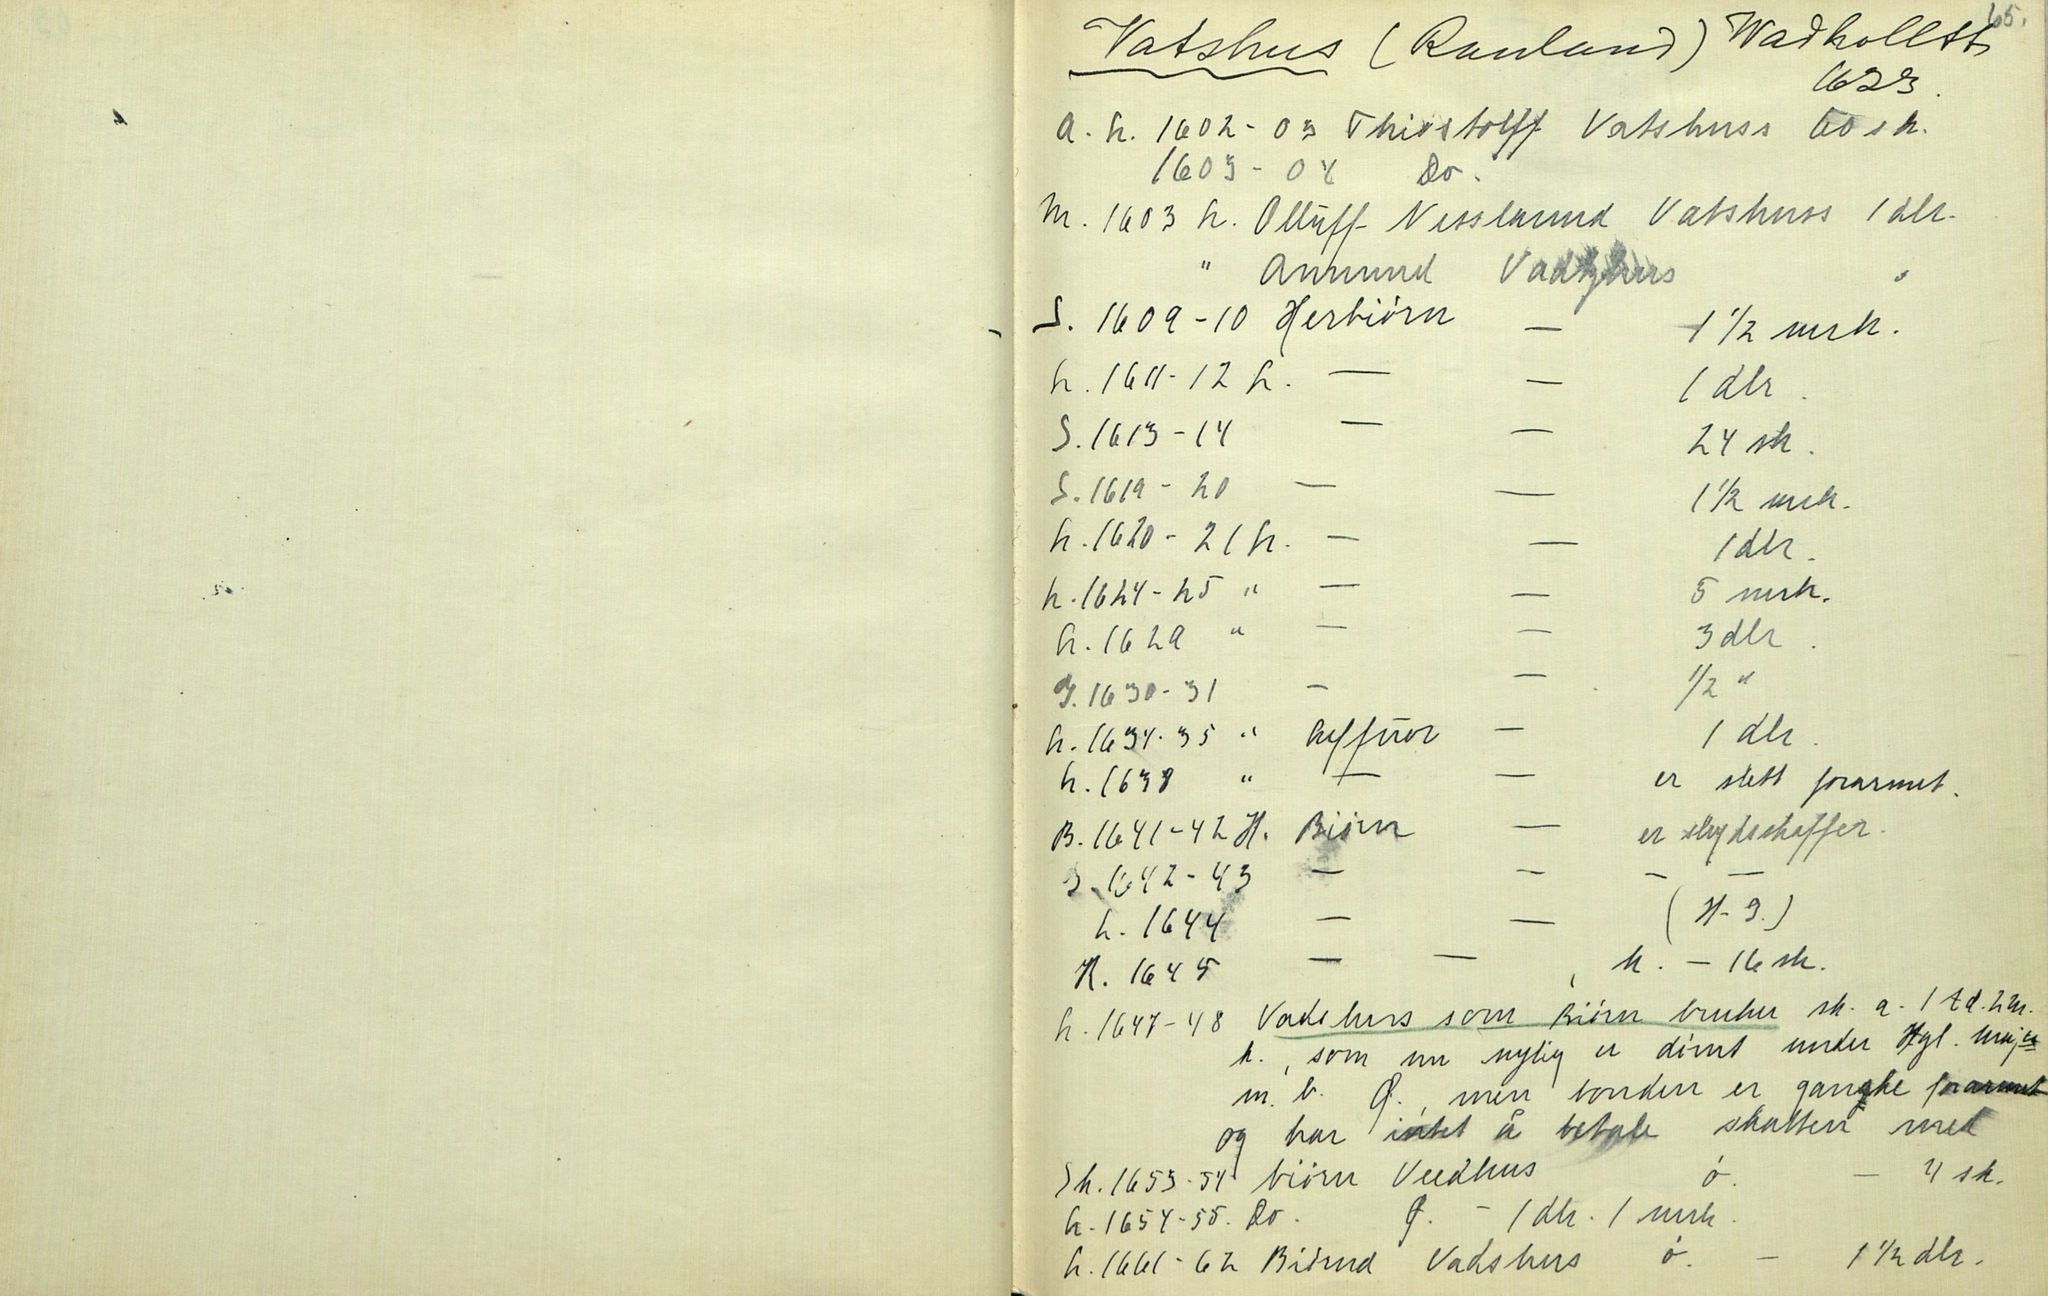 65.
Vatshus (Rauland) Wadhollth
1623.
a. h. 1602-03 Thiostolff Vatshuss 60 sk.
1603-04 Do.
M. 1603 h. Olluff Nesslannd Vatshuss 1 dlr.
" Ammund Vadtzhus "
S. 1609-10 Herbiörn — 1 1/2 mrk.
h. 1611-12 h. — — 1 dlr.
S. 1613-14 — — 24 sk.
S. 1619-20 — — 1 1/2 mrk.
h. 1620-21 h. — — 1 dlr.
h. 1624-25 " — — 5 mrk.
h. 1629 " — — 3 dlr.
J. 1630-31 — — 1/2 "
h. 1634-35 " — 1 dlr.
h. 1638 " — — er slett forarmet.
B. 1641-42 H. Biörn — er skydschaffer.
J. 1642-43 — — — —
h. 1644 — — (H-g.)
K. 1645 — — , h. — 16 sk.
h. 1647-48 Vadshus som Biörn bruker sk. a. 1 td. 2 m.
k., som nu nylig er dömt under Kgl. maj.ts
m. b. Ø., men bonden er ganske forarmet
og har intet å betale skatten med
Sk. 1653-54 biörn Veedhus ö. — 4 sk.
h. 1654-55. Do. Ø. — 1 dlr. 1 mrk.
h. 1661-62 Biörnd Vadshus ö. — 1 1/2 dlr.